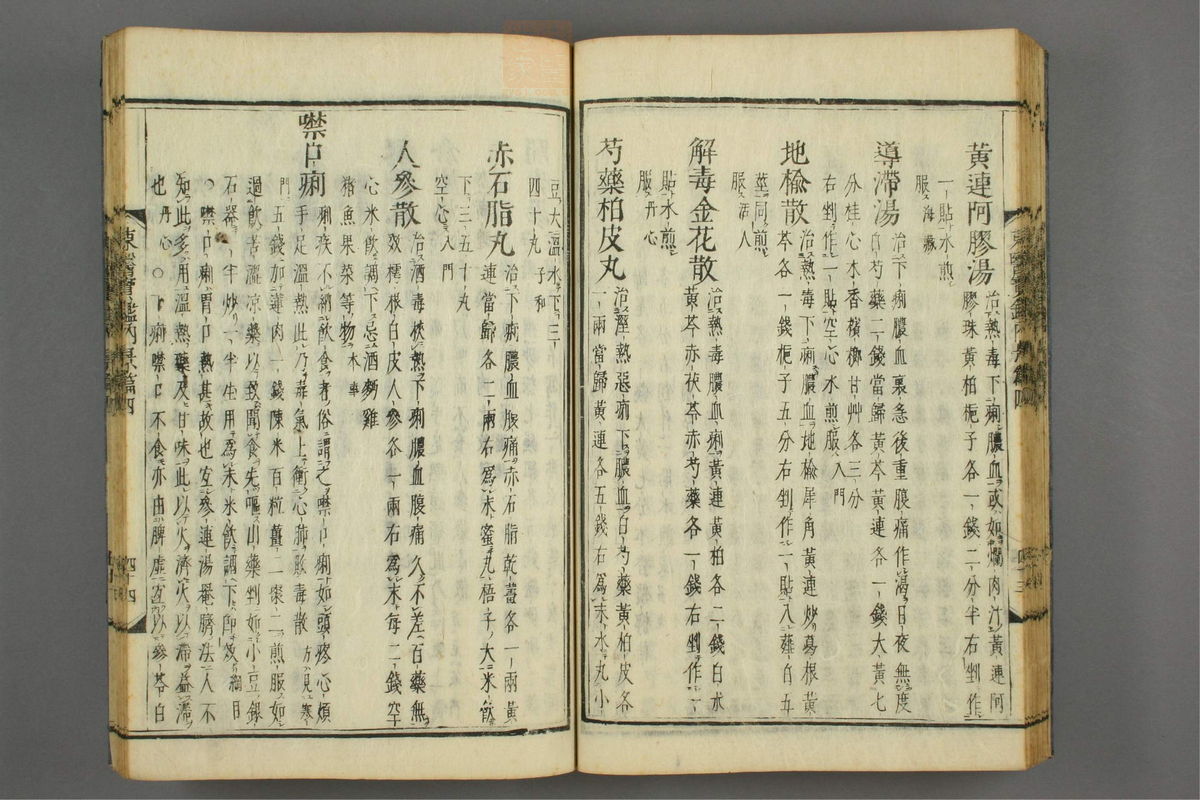 黃連阿膠湯 治熱毒下痢膿血或如爛肉汁黃連阿
膠珠黃柏梔子各一錢二分半右剉作
一貼水煎
服 海藏
導滯湯 治下痢膿血裏急後重腹痛作渴日夜無度
白芍藥二錢當歸黃芩黃連各一錢大黃七
分桂心木香檳榔甘艸各三分
右剉作一貼空心水煎服 入門
地楡散 治熱毒下痢膿血地楡犀角黃連炒葛根黃
芩各一錢梔子五分右剉作一貼入薤白五
莖同煎
服 活人
解毒金花散 治熱毒膿血痢黃連黃柏各二錢白朮
黃芩赤茯苓赤芍藥各一錢右剉作一
貼水煎
服 丹心
芍藥柏皮丸 治溼熱惡痢下膿血白芍藥黃柏皮各
一兩當歸黃連各五錢右爲末水丸小
豆大溫水下三
四十丸 子和
赤石脂丸 治下痢膿血腹痛赤石脂乾薑各一兩黃
連當歸各二兩右爲末蜜丸梧子大米飮
下三五十丸
空心 入門
人參散 治酒毒挾熱下痢膿血腹痛久不差百藥無
效樗根白皮人參各一兩右爲末每二錢空
心米飮調下忌酒麪雞
猪魚果菜等物 本事
噤口痢 痢疾不納飮食者俗謂之噤口痢如頭疼心煩
手足溫熱此乃毒氣上衝心肺敗毒散 方見寒
門 五錢加蓮肉一錢陳米百粒薑二棗二煎服如
過飮苦澁凉藥以致聞食先嘔山藥剉如小豆銀
石器半炒一半生用爲末米飮調下卽效 綱目
○噤口痢胃口熱甚故也宜參連湯罨臍法人不
知此多用溫熱藥及甘味此以火濟火以滯益滯
也 丹心 ○下痢噤口不食亦由脾虛宜以參苓白
東醫寶鑑內景篇四
四十四